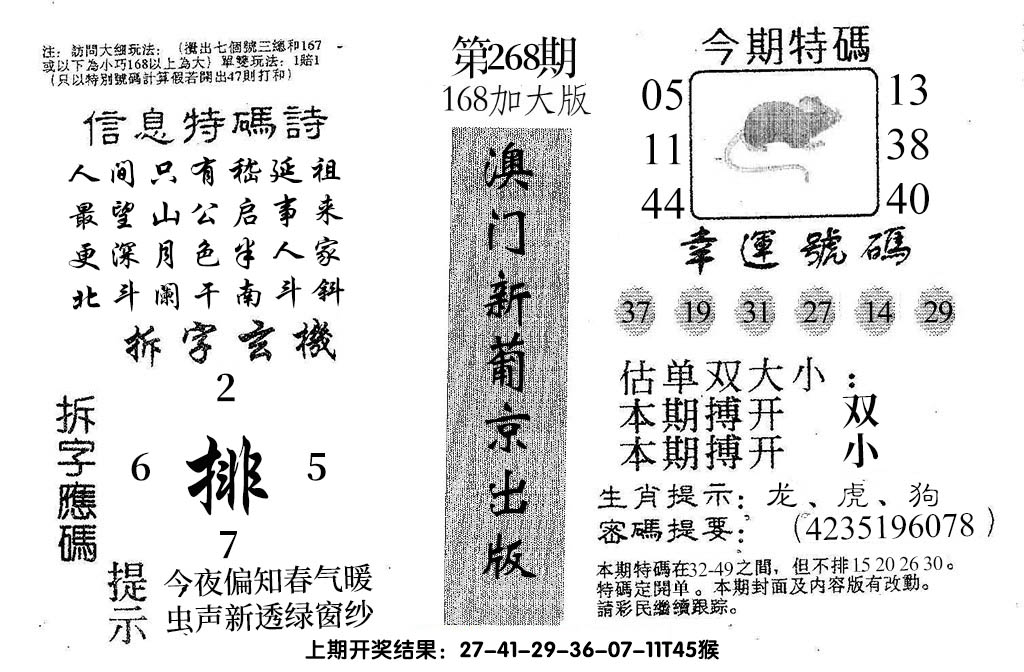 注：訪問大細玩法：（攪出七個號三總和167
或以下為小巧168以上為大）單雙玩法：1賠1
（只以特別號碼計算假若開出47則打和）
信息特碼詩
人间只有嵇延祖
最望山公启事来
更深月色半人家
北斗阑干南斗斜
拆字玄機
拆字應碼
2
6 排 5
7
提示
今夜偏知春气暖
虫声新透绿窗纱
第268期
168加大版
澳门新葡京出版
今期特碼
05 13
11 38
44 40
幸運號碼
37 19 31 27 14 29
估单双大小：
本期搏开 双
本期搏开 小
生肖提示：龙、虎、狗
密碼提要：（4235196078）
本期特碼在32-49之間，但不排15 20 26 30。
特碼定開单。本期封面及内容版有改動。
請彩民繼續跟踪。
上期开奖结果：27-41-29-36-07-11T45猴